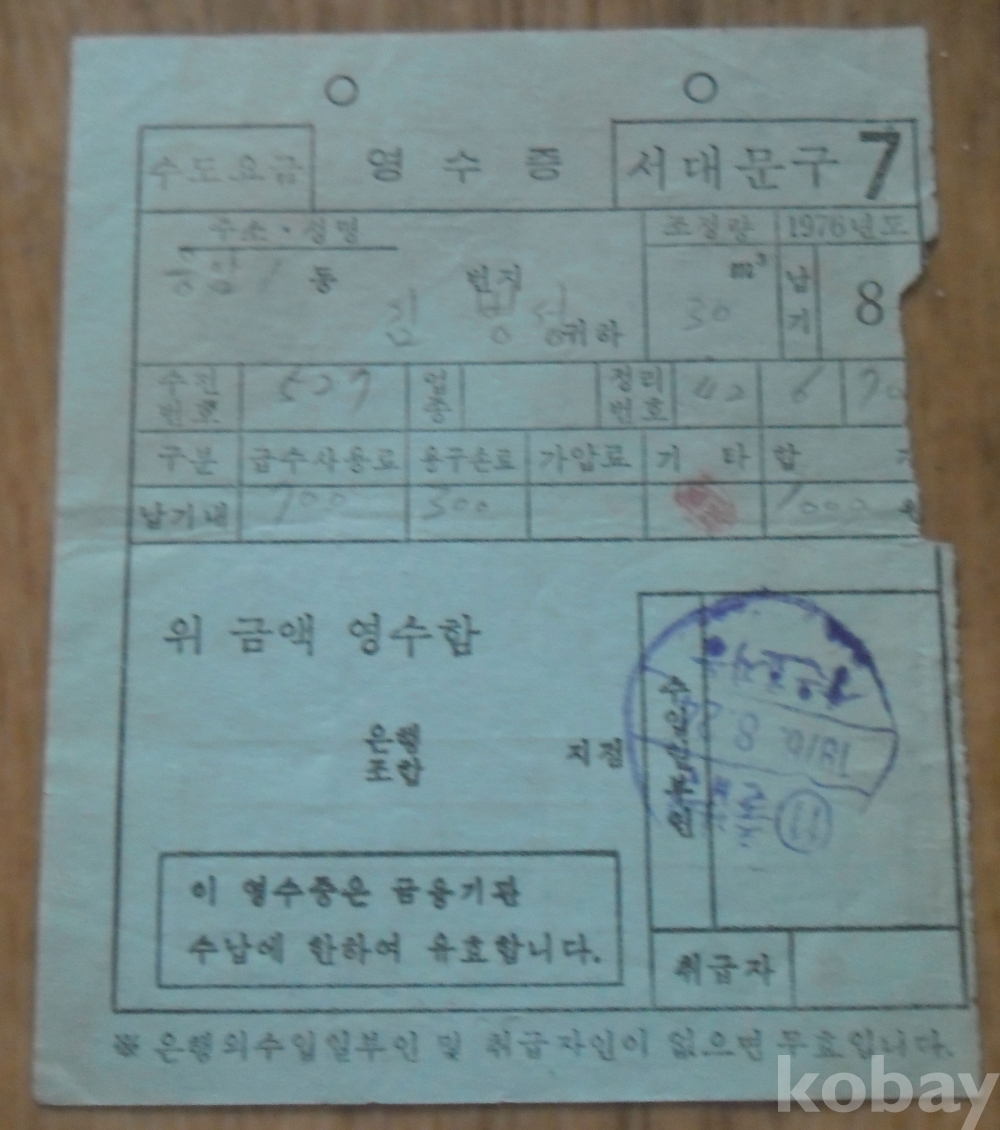 수도요금 영수증 서대문구 7
주소·성명 조정량 1976년도
동 번지 m³ 납기 8
김 귀하 30
수전번호 527 업종 정리번호 42 6
구분 급수사용료 용구손료 가압료 기타 합
납기내 700 300 1000 원
위 금액 영수함
은행
조합 지점
수입일부인
8
11
이 영수증은 금융기관
수납에 한하여 유효합니다.
취급자
※ 은행의수입일부인 및 취급자인이 없으면 무효입니다.
kobay